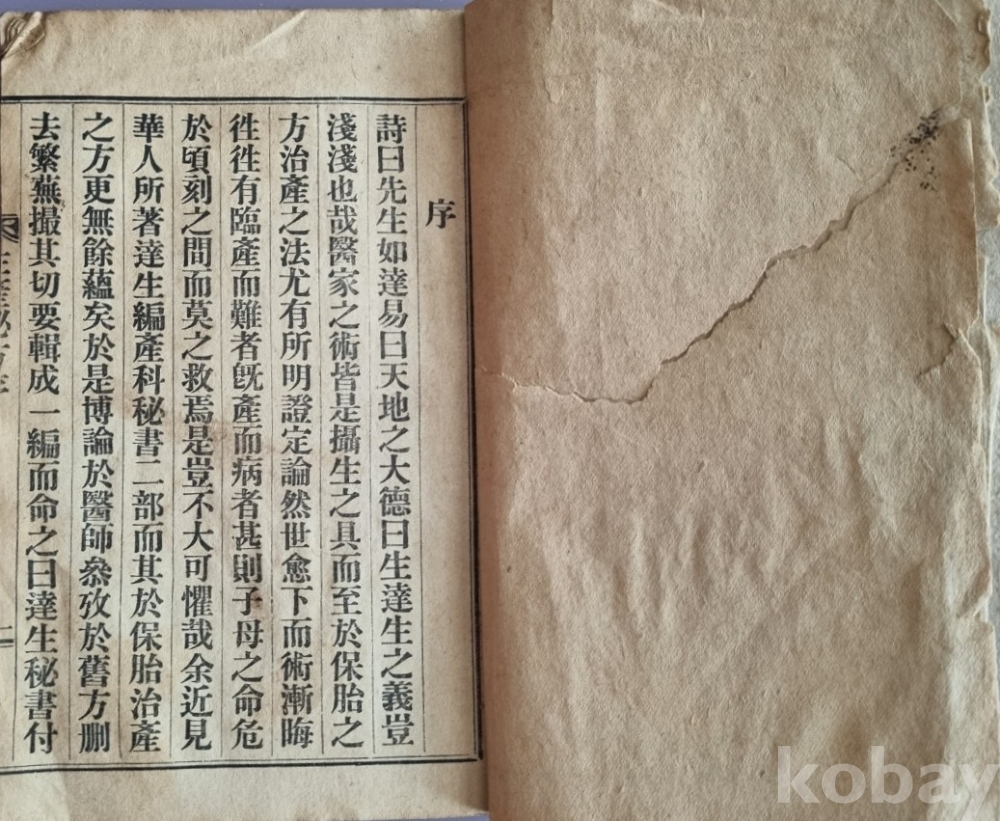 序
詩曰先生如達易曰天地之大德曰生達生之義豈
淺淺也哉醫家之術皆是攝生之具而至於保胎之
方治產之法尤有所明證定論然世愈下而術漸晦
徃徃有臨產而難者旣產而病者甚則子母之命危
於頃刻之間而莫之救焉是豈不大可懼哉余近見
華人所著達生編產科秘書二部而其於保胎治產
之方更無餘蘊矣於是博論於醫師叅攷於舊方刪
去繁蕪撮其切要輯成一編而命之曰達生秘書付
kobay